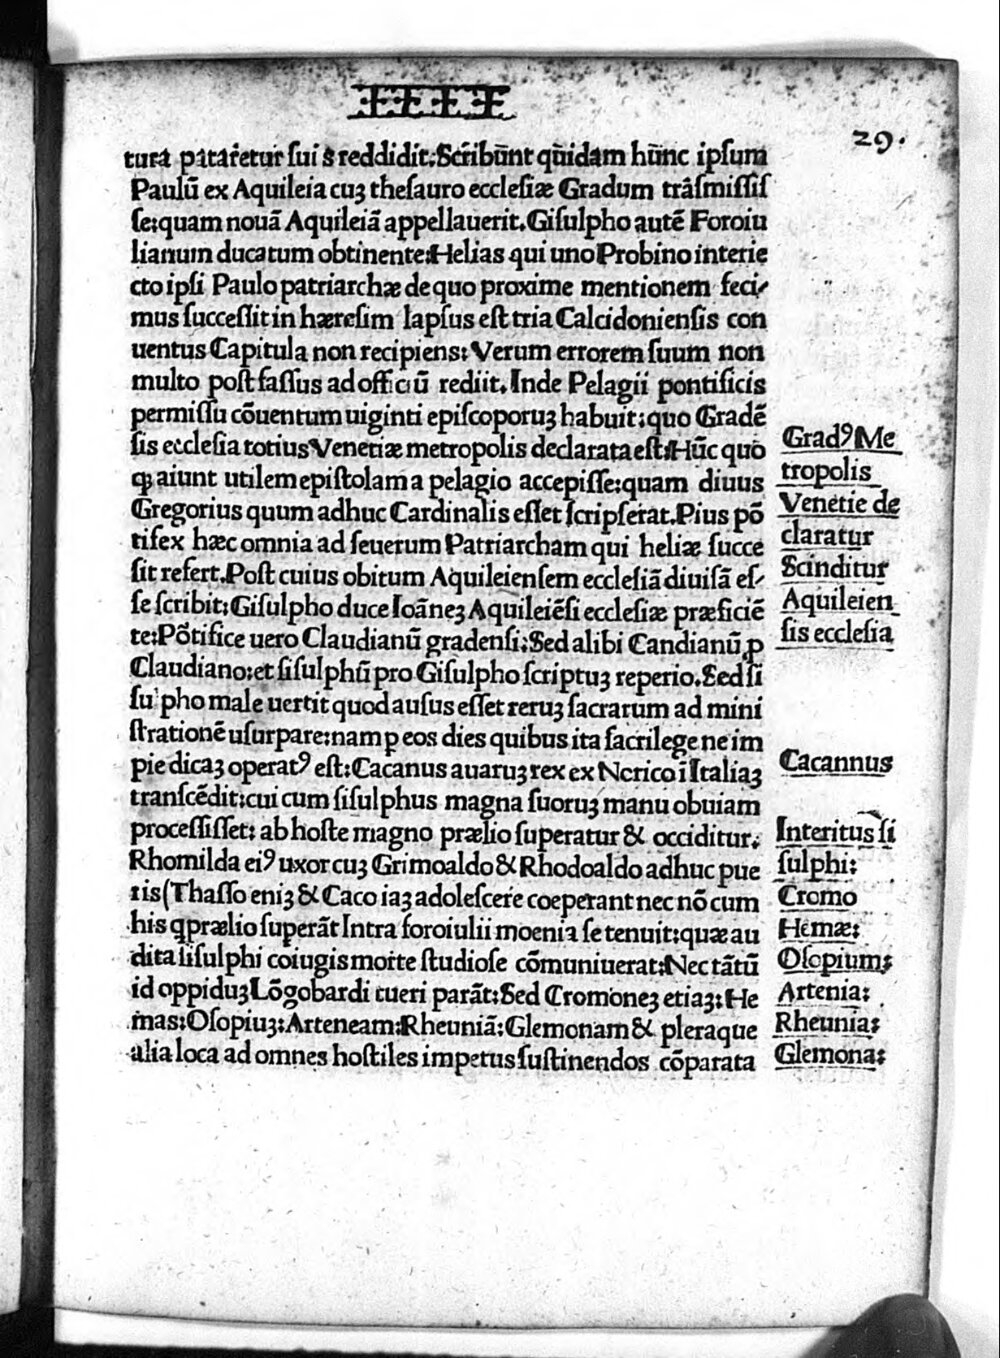 29.
tura pataretur sui s reddidit:Scribūnt quidam hūnc ipsum
Paulū ex Aquileia cuʒ thesauro ecclesiæ Gradum trāsmissis
se:quam nouā Aquileiā appellauerit.Gisulpho autē Foroiu
lianum ducatum obtinente:Helias qui uno Probino interie
cto ipsi Paulo patriarchæ de quo proxime mentionem feci-
mus successit in hæresim lapsus est tria Calcidoniensis con
uentus Capitula non recipiens: Verum errorem suum non
multo post fassus ad officiū rediit. Inde Pelagii pontificis
permissu cōuentum uiginti episcoporuʒ habuit:quo Gradē
sis ecclesia totius Venetiæ metropolis declarata est:Hūc quo
qꝫ aiunt utilem epistolam a pelagio accepisse:quam diuus
Gregorius quum adhuc Cardinalis esset scripserat.Pius pō
tifex hæc omnia ad seuerum Patriarcham qui heliæ succe
sit refert.Post cuius obitum Aquileiensem ecclesiā diuisā es-
se scribit:Gisulpho duce Ioāneʒ Aquileiēsi ecclesiæ præficiē
te:Pōtifice uero Claudianū gradensi:Sed alibi Candianū ꝓ
Claudiano:et sisulphū pro Gisulpho scriptuʒ reperio.Sed si
sulpho male uertit quod ausus esset reruʒ sacrarum ad mini
strationē usurpare:nam p eos dies quibus ita sacrilege ne im
pie dicaʒ operatꝰ est:Cacanus auaruʒ rex ex Norico ī Italiaʒ
transcēdit:cui cum sisulphus magna suoruʒ manu obuiam
processisset: ab hoste magno prælio superatur & occiditur:
Rhomilda eiꝰ uxor cuʒ Grimoaldo & Rhodoaldo adhuc pue
ris(Thasso eniʒ & Caco iaʒ adolescere coeperant nec nō cum
his q prælio superāt Intra foroiulii moenia se tenuit:quæ au
dita sisulphi coiugis morte studiose cōmuniuerat:Nec tātū
id oppiduʒ Lōgobardi tueri parāt:Sed Cromoneʒ etiaʒ:He
mas:Osopiuʒ:Arteneam:Rheuniā:Glemonam & pleraque
alia loca ad omnes hostiles impetus sustinendos cōparata
Gradꝰ Me
tropolis
Venetie de
claratur
Scinditur
Aquileien
sis ecclesia
Cacannus
Interitus si
sulphi:
Cromo
Hemæ:
Osopium:
Artenia:
Rheunia:
Glemona: